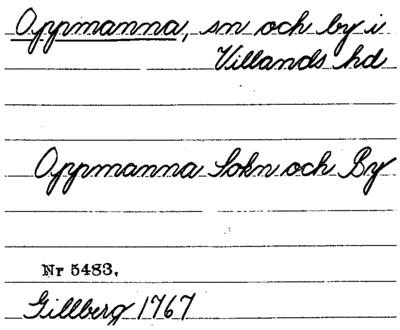 Oppmanna, sn och by i
Villands hd
Oppmanna Sokn och By
Nr 5483.
Gillberg 1767